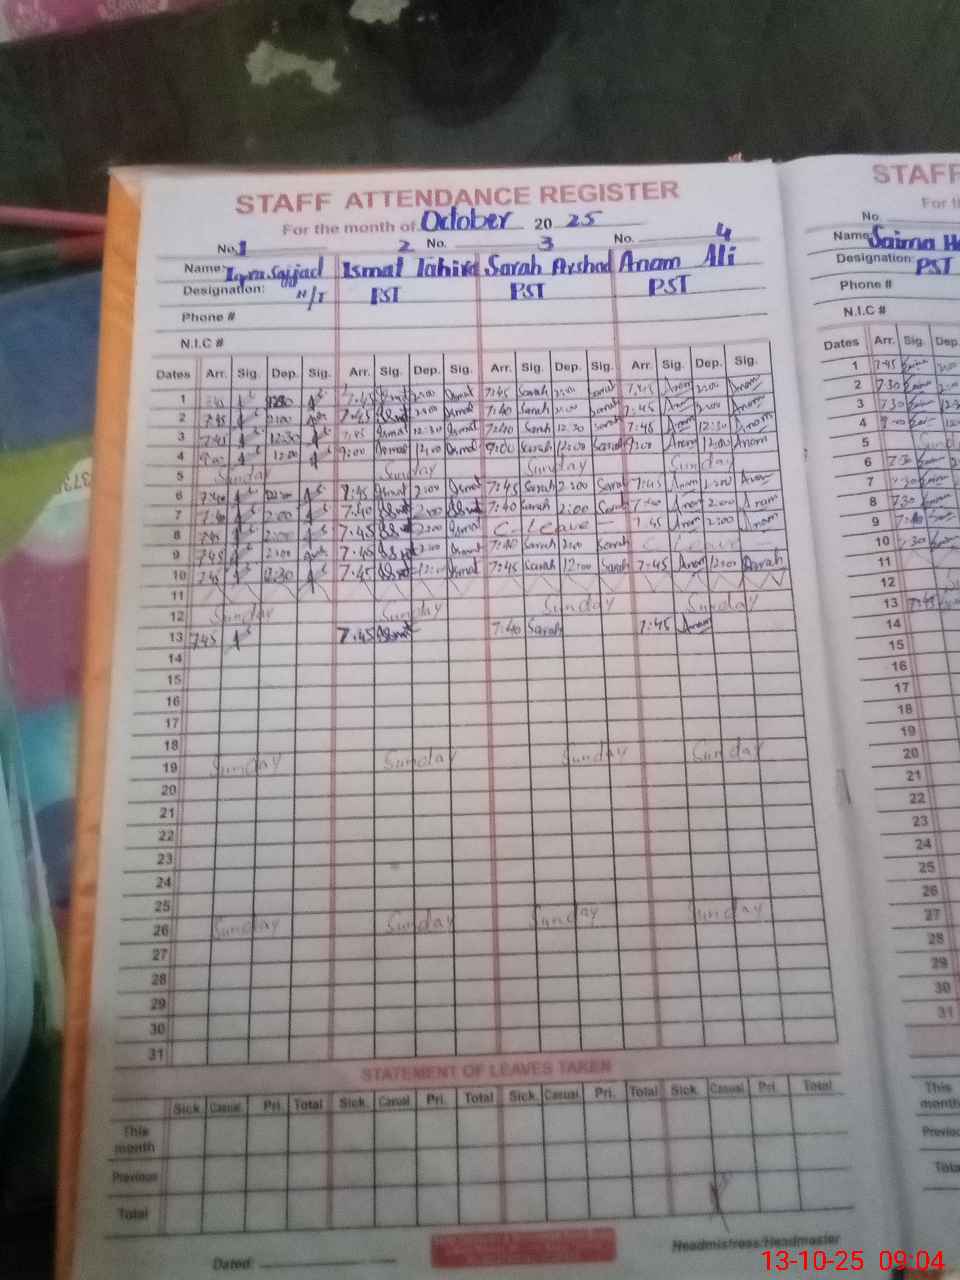 STAFF ATTENDANCE REGISTER
For the month of October 20 25
No. 1 2 No. 3 No. 4
Name: Iqra Sajjad Ismat Tahira Sarah Arshad Anam Ali
Designation: H/T PST PST PST
Phone #
N.I.C #
Dates Arr. Sig. Dep. Sig. Arr. Sig. Dep. Sig. Arr. Sig. Dep. Sig. Arr. Sig. Dep. Sig.
1 7:45 2:00 Ismat 7:45 Sarah 2:00 Sarah 7:45 Anam 2:00 Anam
2 7:45 2:00 7:45 Ismat 2:00 Ismat 7:40 Sarah 2:00 Sarah 7:45 Anam 2:00 Anam
3 7:45 12:30 7:45 Ismat 12:30 Ismat 7:40 Sarah 12:30 Sarah 7:45 Anam 12:30 Anam
4 9:00 12:00 9:00 Ismat 12:00 Ismat 9:00 Sarah 12:00 Sarah 9:00 Anam 12:00 Anam
5 Sunday Sunday Sunday Sunday
6 7:40 7:45 Ismat 2:00 Ismat 7:45 Sarah 2:00 Sarah 7:45 Anam 2:00 Anam
7 7:40 2:00 7:40 Ismat 2:00 Ismat 7:40 Sarah 2:00 Sarah 7:40 Anam 2:00 Anam
8 7:45 2:00 7:45 Ismat 2:00 Ismat C Leave 7:45 Anam 2:00 Anam
9 7:45 2:00 7:45 Ismat 2:00 Ismat 7:40 Sarah 2:00 Sarah C Leave
10 7:45 12:30 7:45 Ismat Ismat 7:45 Sarah 12:00 Sarah 7:45 Anam 12:00
11
12 Sunday Sunday Sunday Sunday
13 7:45 7:45 Ismat 7:40 Sarah 7:45 Anam
14
15
16
17
18
19 Sunday Sunday Sunday Sunday
20
21
22
23
24
25
26 Sunday Sunday Sunday Sunday
27
28
29
30
31
STATEMENT OF LEAVES TAKEN
Sick Casual Pri. Total Sick. Casual Pri. Total Sick. Casual Pri. Total Sick Casual Pri. Total
This month
Previous
Total
Dated:
Headmistress/Headmaster
STAFF
No.
Name: Saima
Designation: PST
Phone #
N.I.C #
Dates Arr. Sig. Dep.
1 7:45
2 7:30
3 7:30
4 9:00
5
6 7:30
7 7:30
8 7:30
9 7:40
10 7:30
11
12
13 7:45
14
15
16
17
18
19
20
21
22
23
24
25
26
27
28
29
30
31
This month
13-10-25 09:04